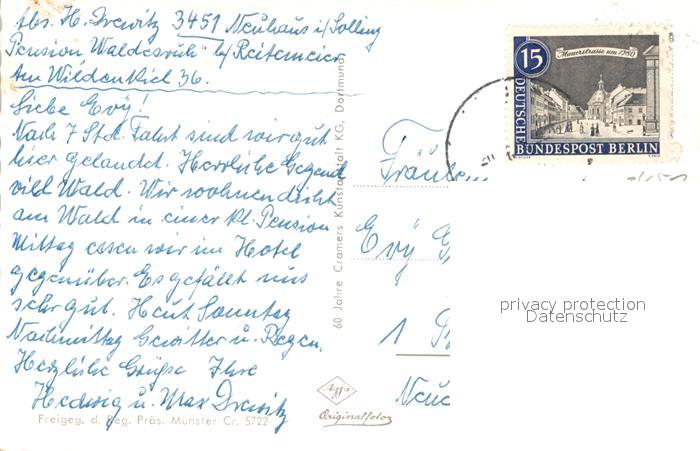 Abs. H. Drewitz 3451 Neuhaus i/Solling
Pension "Waldesruh" b/Reitemeier
Am Wildenkiel 36.
Liebe Evÿ!
Nach 7 Std. Fahrt sind wir gut
hier gelandet. Herrliche Gegend
viel Wald. Wir wohnen dicht
am Wald in einer kl. Pension
Mittag essen wir im Hotel
gegenüber. Es gefällt uns
sehr gut. Heut Sonntag
Nachmittag Gewitter u. Regen.
Herzliche Grüße Ihre
Hedwig u. Max Drewitz
Freigeg. d. Reg. Präs. Münster Cr. 5722
60 Jahre Cramers Kunstanstalt KG, Dortmund
Agfa
Originalfoto
15
Mauerstrasse um 1780
DEUTSCHE
BUNDESPOST BERLIN
Fräulein
Evÿ G
1 B
Neuc
privacy protection
Datenschutz